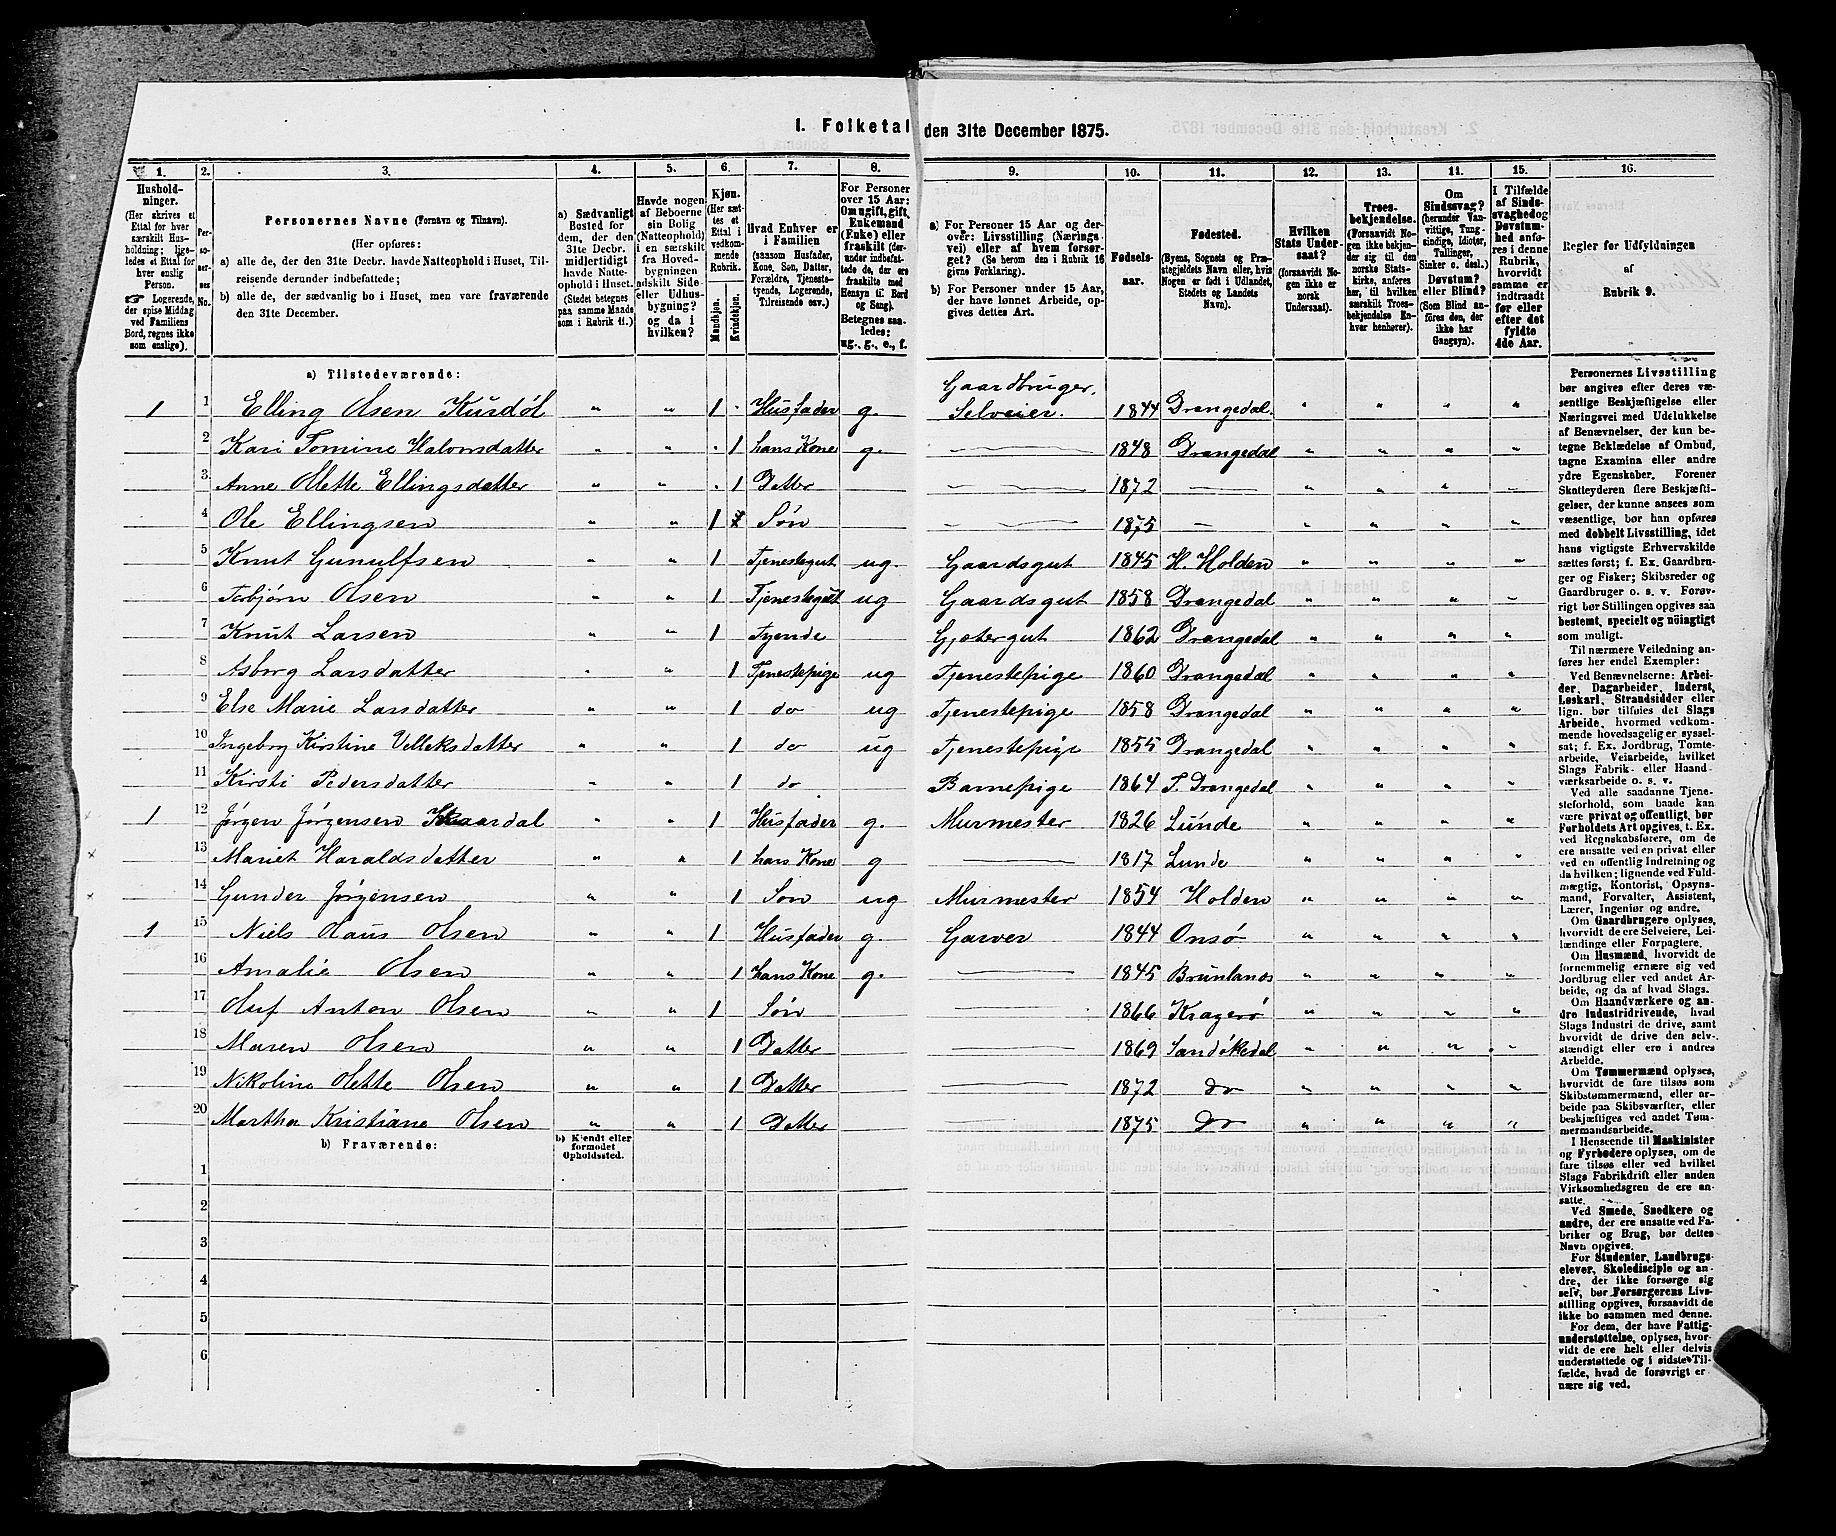 1. Folketal den 31te December 1875.
1. 2. 3. 4. 5. 6. 7. 8. 9. 10. 11. 12. 13. 14. 15. 16.
Hushold-
ninger.
(Her skrives et
Ettal for hver
særskilt Hus-
holdning; lige-
ledes et Ettal for
hver enslig
Person.
☞ Logerende,
der spise Middag
ved Familiens
Bord, regnes ikke
som enslige).
Per-
so-
ner-
nes
No.
Personernes Navne (Fornavn og Tilnavn).
(Her opføres:
a) alle de, der den 31te Decbr. havde Natteophold i Huset, Til-
reisende derunder indbefattede;
b) alle de, der sædvanlig bo i Huset, men vare fraværende
den 31te December.
a) Sædvanligt
Bosted for
dem, der den
31te Decbr.
midlertidigt
havde Natte-
ophold i Huset.
(Stedet betegnes
paa samme Maade
som i Rubrik 11.)
Havde nogen
af Beboerne
sin Bolig
(Natteophold)
i en særskilt
fra Hoved-
bygningen
adskilt Side-
eller Udhus-
bygning?
og da i
hvilken?
Kjøn.
(Her sæt-
tes et
Ettal i
vedkom-
mende
Rubrik.
Mandkjøn.
Kvindekjøn.
Hvad Enhver er
i Familien
(saasom Husfader,
Kone, Søn, Datter,
Forældre, Tjeneste-
tyende, Logerende,
Tilreisende osv.)
For Personer
over 15 Aar:
Om ugift, gift,
Enkemand
(Enke) eller
fraskilt (der-
under indbefat-
tede de, der ere
fraskilte med
Hensyn til Bord
og Seng).
Betegnes saa-
ledes:
ug., g., e., f.
a) For Personer 15 Aar og der-
over: Livsstilling (Nærings-
vei) eller af hvem forsør-
get? (Se herom den i Rubrik 16
givne Forklaring).
b) For Personer under 15 Aar,
der have lønnet Arbeide, op-
gives dettes Art.
Fødsels-
aar.
Fødested.
(Byens, Sognets og Præ-
stegjeldets Navn eller, hvis
Nogen er født i Udlandet,
Stedets og Landets
Navn).
Hvilken
Stats Under-
saat?
(forsaavidt No-
gen ikke er
norsk
Undersaat).
Troes-
bekjendelse.
(Forsaavidt No-
gen ikke bekjen-
der sig til den
norske Stats-
kirke, anføres
her, til hvilken
særskilt Troes-
bekjendelse En-
hver henhører).
Om
Sindssvag?
(herunder Van-
vittige, Tung-
sindige, Idioter,
Tullinger,
Sinker o. desl.)
Døvstum?
eller Blind?
(Som Blind an-
føres den, der
ikke har
Gangsyn).
I Tilfælde
af Sinds-
svaghed og
Døvstum-
hed anfø-
res i denne
Rubrik,
hvorvidt
samme er
indtraadt
før eller
efter det
fyldte
4de Aar.
Regler for Udfyldningen
af
Rubrik 9.
a) Tilstedeværende:
1 1 Elling Olsen Kurdøl „ „ 1 · Husfader g. Gaardbruger, Selveier. 1844 Drangedal. „ „ „ „
2 Kari Tomine Halvorsdatter „ „ · 1 hans Kone g. 1848 Drangedal „ „ „ „
3 Anne Olette Ellingsdatter „ „ · 1 Datter 1872 — „ „ „ „
4 Ole Ellingsen „ „ 1 Søn 1875 — „ „ „ „
5 Knut Gunulfsen „ „ 1 Tjenestegut ug. Gaardsgut 1845 H. Holden „ „ „ „
6 Torbjørn Olsen „ „ 1 Tjenestegut ug Gaardsgut 1858 Drangedal „ „ „ „
7 Knut Larsen „ „ 1 Tyende Gjætergut 1862 Drangedal „ „ „ „
8 Asborg Larsdatter „ „ 1 Tjenestepige ug Tjenestepige 1860 Drangedal „ „ „ „
9 Else Marie Larsdatter „ „ 1 do ug Tjenestepige 1858 Drangedal „ „ „ „
10 Ingeborg Kirstine Velleksdatter „ „ 1 do ug Tjenestepige 1855 Drangedal „ „ „ „
11 Kirsti Pedersdatter „ „ 1 do Barnepige 1864 T. Drangedal „ „ „ „
1 12 Jørgen Jørgensen „ „ 1 Husfader g. Murmester 1826 Lunde „ „ „ „
13 Mariet Haraldsdatter „ „ 1 hans Kone g 1817 Lunde „ „ „ „
14 Gunder Jørgensen „ „ 1 Søn ug Murmester 1854 Holden „ „ „ „
1 15 Niels Claus Olsen „ „ 1 Husfader g. Garver 1844 Onsø „ „ „ „
16 Amalie Olsen „ „ 1 hans Kone g. 1845 Brunlanæs „ „ „ „
17 Oluf Anton Olsen „ „ 1 Søn 1866 Kragerø „ „ „ „
18 Maren Olsen „ „ 1 Datter 1869 Sandøkedal „ „ „ „
19 Nikoline Olette Olsen „ „ 1 Datter 1872 Do „ „ „ „
20 Martha Kristiane Olsen „ „ 1 Datter 1875 Do „ „ „ „
b) Fraværende:
b) Kjendt eller
formodet
Opholdssted.
1
2
3
4
5
6
Personernes Livsstilling
bør angives efter deres væ-
sentlige Beskjæftigelse eller
Næringsvei med Udelukkelse
af Benævnelser, der kun be-
tegne Beklædelse af Ombud,
tagne Examina eller andre
ydre Egenskaber. Forener
Skatteyderen flere Beskjæfti-
gelser, der kunne ansees som
væsentlige, bør han opføres
med dobbelt Livsstilling, idet
hans vigtigste Erhvervskilde
sættes først; f. Ex. Gaardbru-
ger og Fisker; Skibsreder og
Gaardbruger o. s. v. Forøv-
rigt bør Stillingen opgives saa
bestemt, specielt og nøiagtigt
som muligt.
Til nærmere Veiledning an-
føres her endel Exempler:
Ved Benævnelserne: Arbei-
der, Dagarbeider, Inderst,
Løskarl, Strandsidder eller
lign. bør tilføies det Slags
Arbeide, hvormed vedkom-
mende hovedsagelig er syssel-
sat; f. Ex. Jordbrug, Tomte-
arbeide, Veiarbeide, hvilket
Slags Fabrik- eller Haand-
værksarbeide o. s. v.
Ved alle saadanne Tjene-
steforhold, som baade kan
være privat og offentligt, bør
Forholdets Art opgives, t. Ex.
ved Regnskabsførere, om de
ere ansatte ved en privat eller
ved en offentlig Indretning og
da hvilken; lignende ved Fuld-
mægtig, Kontorist, Opsyns-
mand, Forvalter, Assistent,
Lærer, Ingeniør og andre.
Om Gaardbrugere oplyses,
hvorvidt de ere Selveiere, Lei-
lændinge eller Forpagtere.
Om Husmænd, hvorvidt de
fornemmelig ernære sig ved
Jordbrug eller ved andet Ar-
beide, og da af hvad Slags.
Om Haandværkere og an-
dre Industridrivende, hvad
Slags Industri de drive, samt
hvorvidt de drive den selv-
stændigt eller ere i andres
Arbeide.
Om Tømmermænd oplyses,
hvorvidt de fare tilsøs som
Skibstømmermænd, eller ar-
beide paa Skibsværfter, eller
beskjæftiges ved andet Tøm-
mermandsarbeide.
I Henseende til Maskinister
og Fyrbødere oplyses, om de
fare tilsøs eller ved hvilket
Slags Fabrikdrift eller anden
Virksomhedsgren de ere an-
satte.
Ved Smede, Snedkere og
andre, der ere ansatte ved Fa-
briker og Brug, bør dettes
Navn opgives.
For Studenter, Landbrugs-
elever, Skoledisciple og an-
dre, der ikke forsørge sig
selv, bør Forsørgerens Livs-
stilling opgives, forsaavidt de
ikke bo sammen med denne.
For dem, der have Fattig-
understøttelse, oplyses, hvor-
vidt de ere helt eller delvis
understøttede og i sidste Til-
fælde, hvad de forøvrigt er-
nære sig ved.